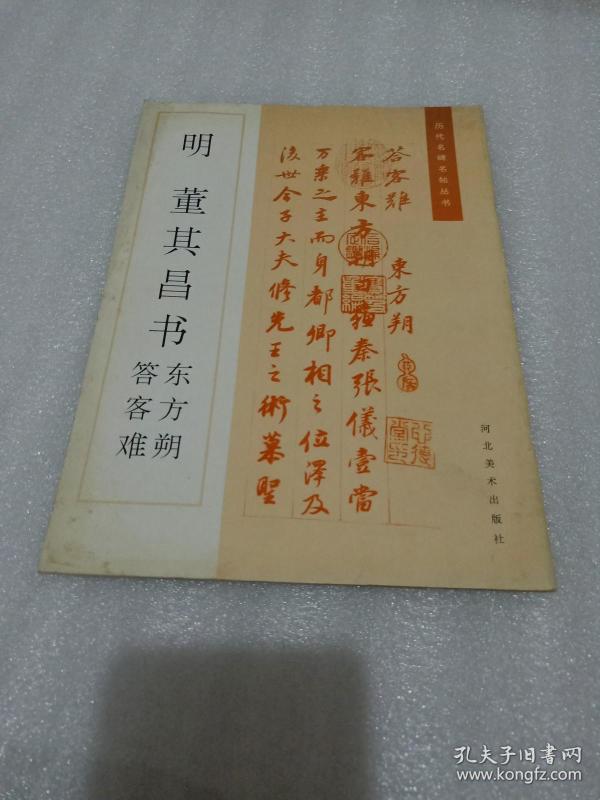 历代名碑名帖丛书
明 董其昌书
东方朔
答客难
答客难 東方朔
客難東方朔曰蘇秦張儀壹當
万乘之主而身都卿相之位澤及
後世今子大夫修先王之術慕聖
河北美术出版社
孔夫子旧书网
www.kongfz.com